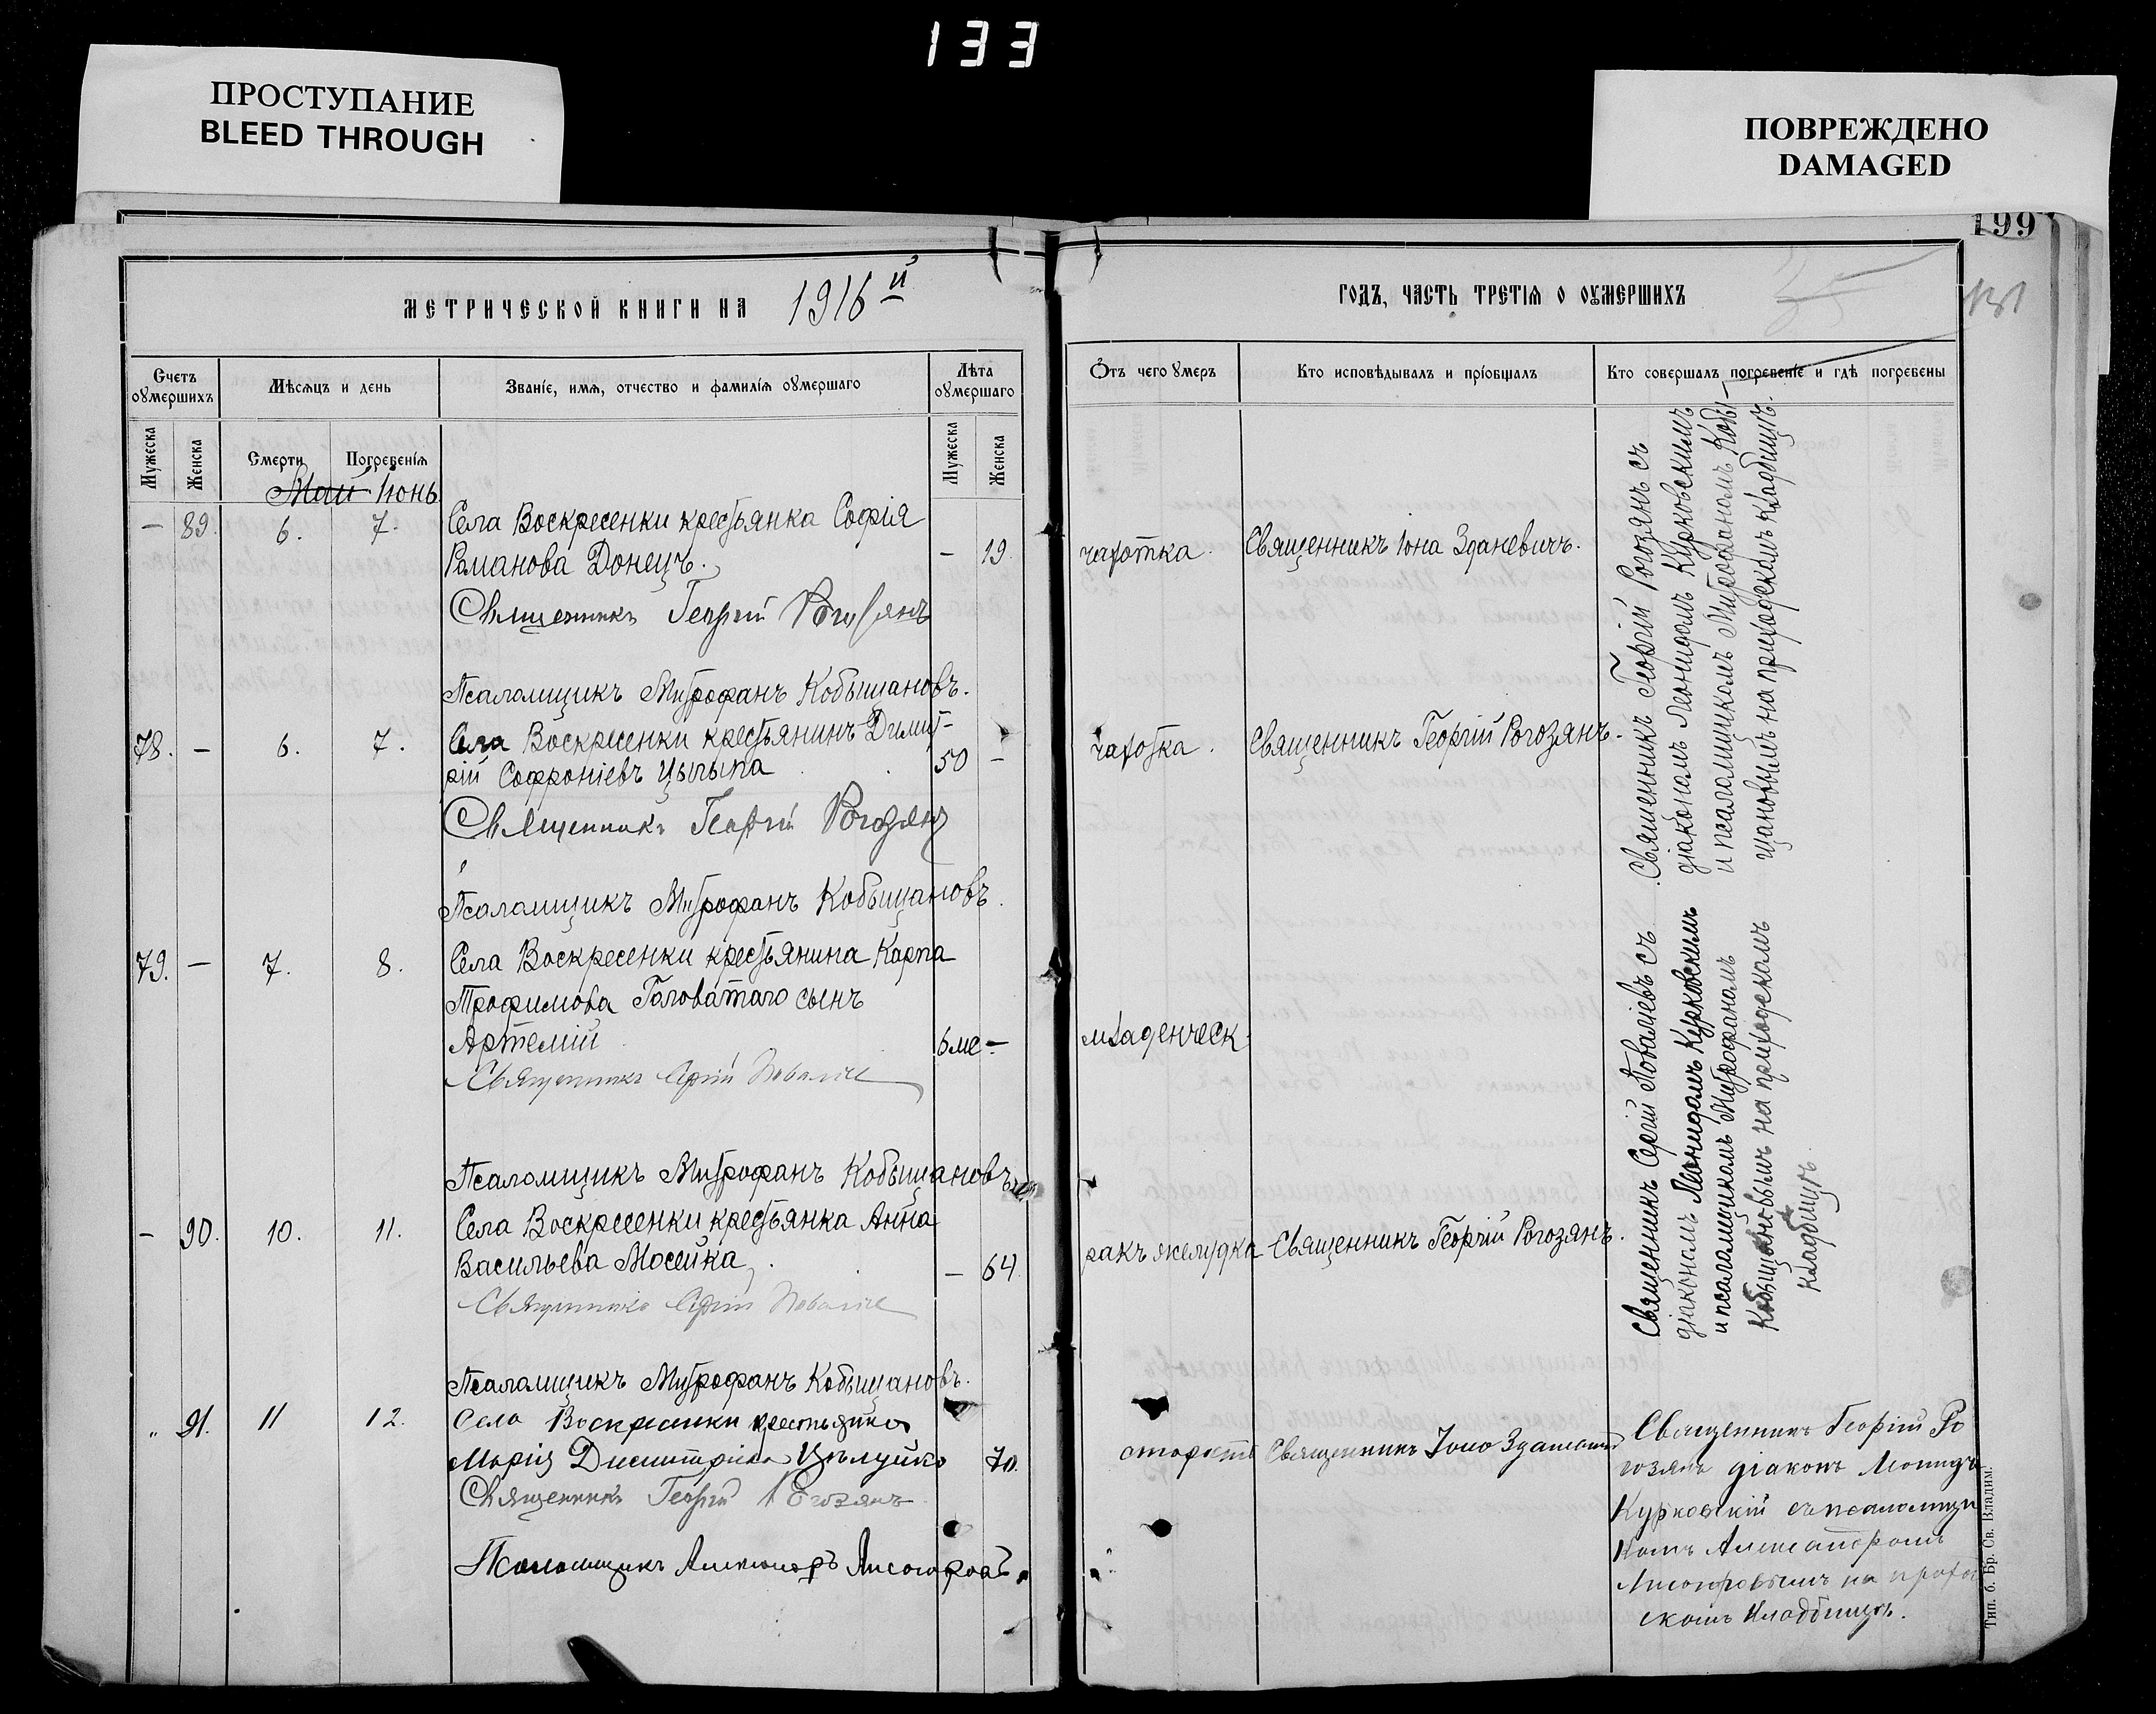 133
ПРОСТУПАНИЕ
BLEED THROUGH
ПОВРЕЖДЕНО
DAMAGED
199
131
МЕТРИЧЕСКОЙ КНИГИ НА 1916й
ГОДЪ, ЧАСТЬ ТРЕТІЯ О ОУМЕРШИХЪ
Счетъ оумершихъ
Мѣсяцъ и день
Званіе, имя, отчество и фамилія оумершаго
Лѣта оумершаго
Отъ чего умеръ
Кто исповѣдывалъ и пріобщалъ
Кто совершалъ погребеніе и гдѣ погребены
Мужеска
Женска
Смерти
Погребенія
Мужеска
Женска
Май Іюнь
— 89. 6. 7. Села Воскресенки крестьянка Софія
Романова Донецъ. — 19. чахотка. Священникъ Іона Зданевичъ.
Священникъ Георгій Рогозянъ
Псаломщикъ Митрофанъ Кобыщановъ.
78. — 6. 7. Села Воскресенки крестьянинъ Димит-
рій Софроніевъ Цыгыпа 50 — чахотка. Священникъ Георгій Рогозянъ.
Священникъ Георгій Рогозянъ
Псаломщикъ Митрофанъ Кобыщановъ.
Священникъ Георгій Рогозянъ съ
діакономъ Леонидомъ Курковскимъ
и псаломщикомъ Митрофаномъ Кобы-
щановымъ на приходскомъ кладбищѣ.
79. — 7. 8. Села Воскресенки крестьянина Карпа
Трофимова Головатаго сынъ
Артемій 6 ме — младенческ.
Священникъ Сергій Повалѣевъ
Псаломщикъ Митрофанъ Кобыщановъ
— 90. 10. 11. Села Воскресенки крестьянка Анна
Васильева Мосейка. — 64 ракъ желудка Священникъ Георгій Рогозянъ.
Священникъ Сергій Повалѣевъ
Псаломщикъ Митрофанъ Кобыщановъ.
Священникъ Сергій Повалѣевъ съ
діакономъ Леонидомъ Курковскимъ
и псаломщикомъ Митрофаномъ
Кобыщановымъ на приходскомъ
кладбищѣ.
„ 91. 11 12. Села Воскресенки крестьянка
Марія Димитріева 70. старость Священникъ Іона Зданевичъ
Священникъ Георгій Рогозянъ
Псаломщикъ Александръ Лисогоровъ.
Священникъ Георгій Ро
гозянъ діаконъ Леонидъ
Курковскій съ псаломщи
комъ Александромъ
Лисогоровымъ на приход
скомъ кладбищѣ.
Тип. б. Бр. Св. Владим.